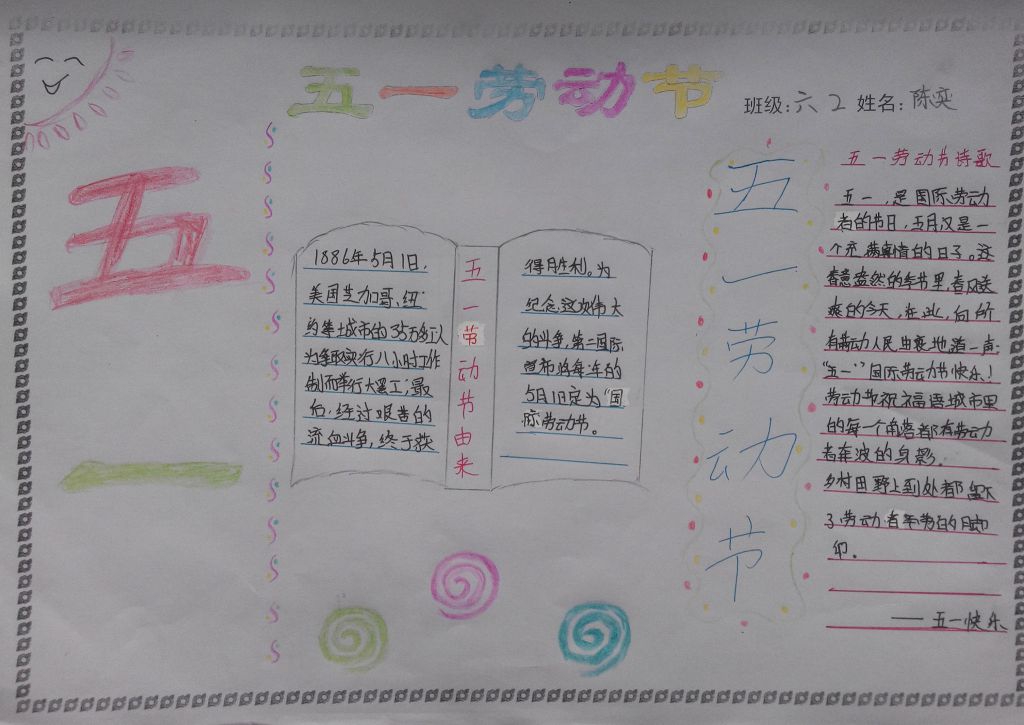 五一劳动节
班级:六 2 姓名:陈奕
五
一
1886年5月1日,
美国芝加哥、纽
约等城市的35万多工人
为争取实行八小时工作
制而举行大罢工;最
后,经过艰苦的
流血斗争,终于获
五一劳动节由来
得胜利。为
纪念这次伟大
的斗争,第二国际
宣布将每年的
5月1日定为"国
际劳动节。
五一劳动节
五一劳动节诗歌
五一,是国际劳动
者的节日,五月又是一
个充满真情的日子。这
春意盎然的季节里,春风送
爽的今天,在此,向所
有劳动人民由衷地道一声:
"五一"国际劳动节快乐!
劳动节祝福语城市里
的每一个角落都有劳动
者奔波的身影.
乡村田野上到处都留下
了劳动者辛劳的脚
印。
——五一快乐